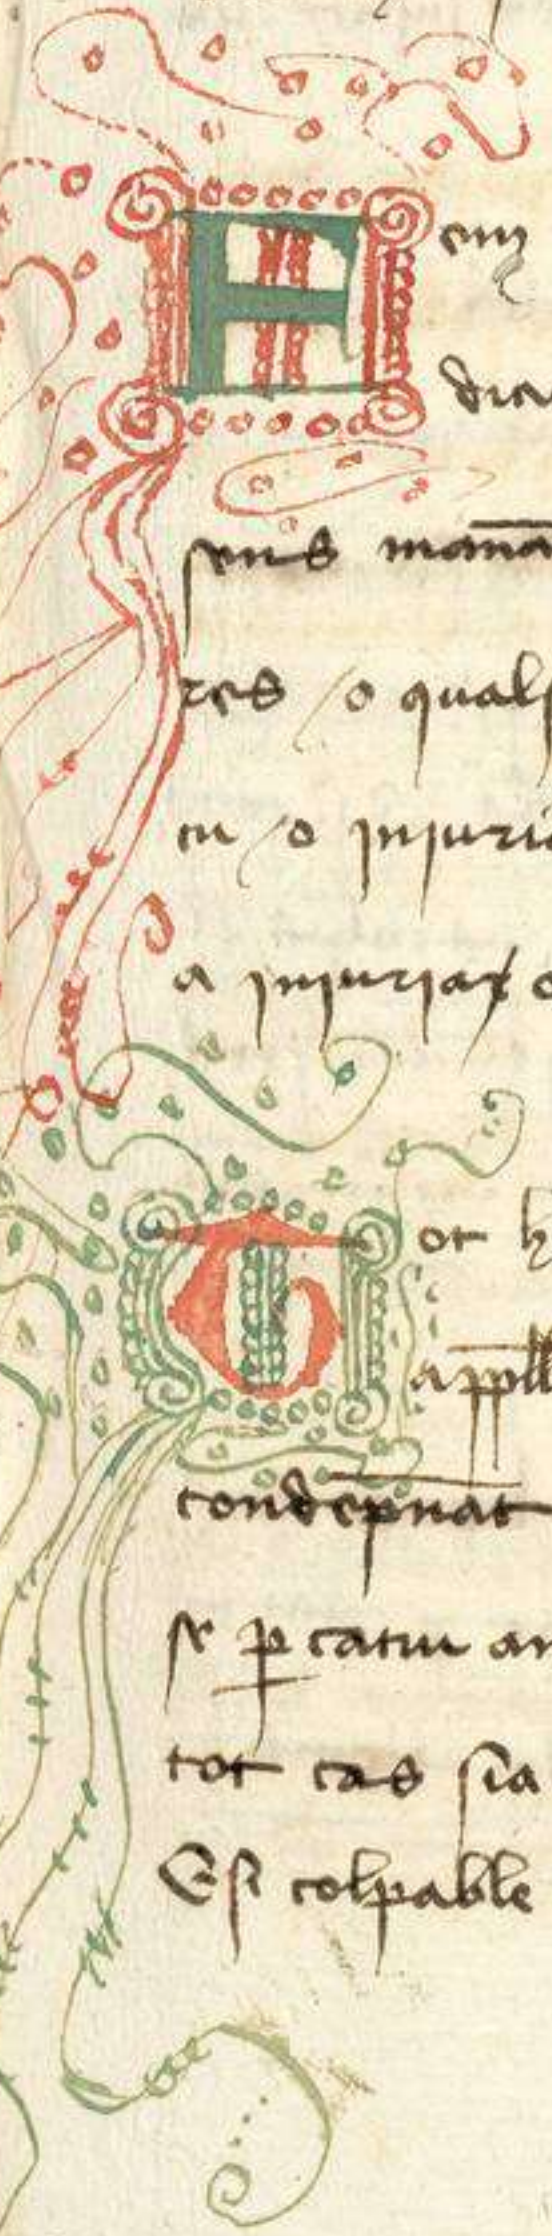 Fem
dia
sens mana
res / o quals
cu / o injuri
a injurias o
Tot h
appll
condepnat
se per catiu an
tot cas sia
E si colpable